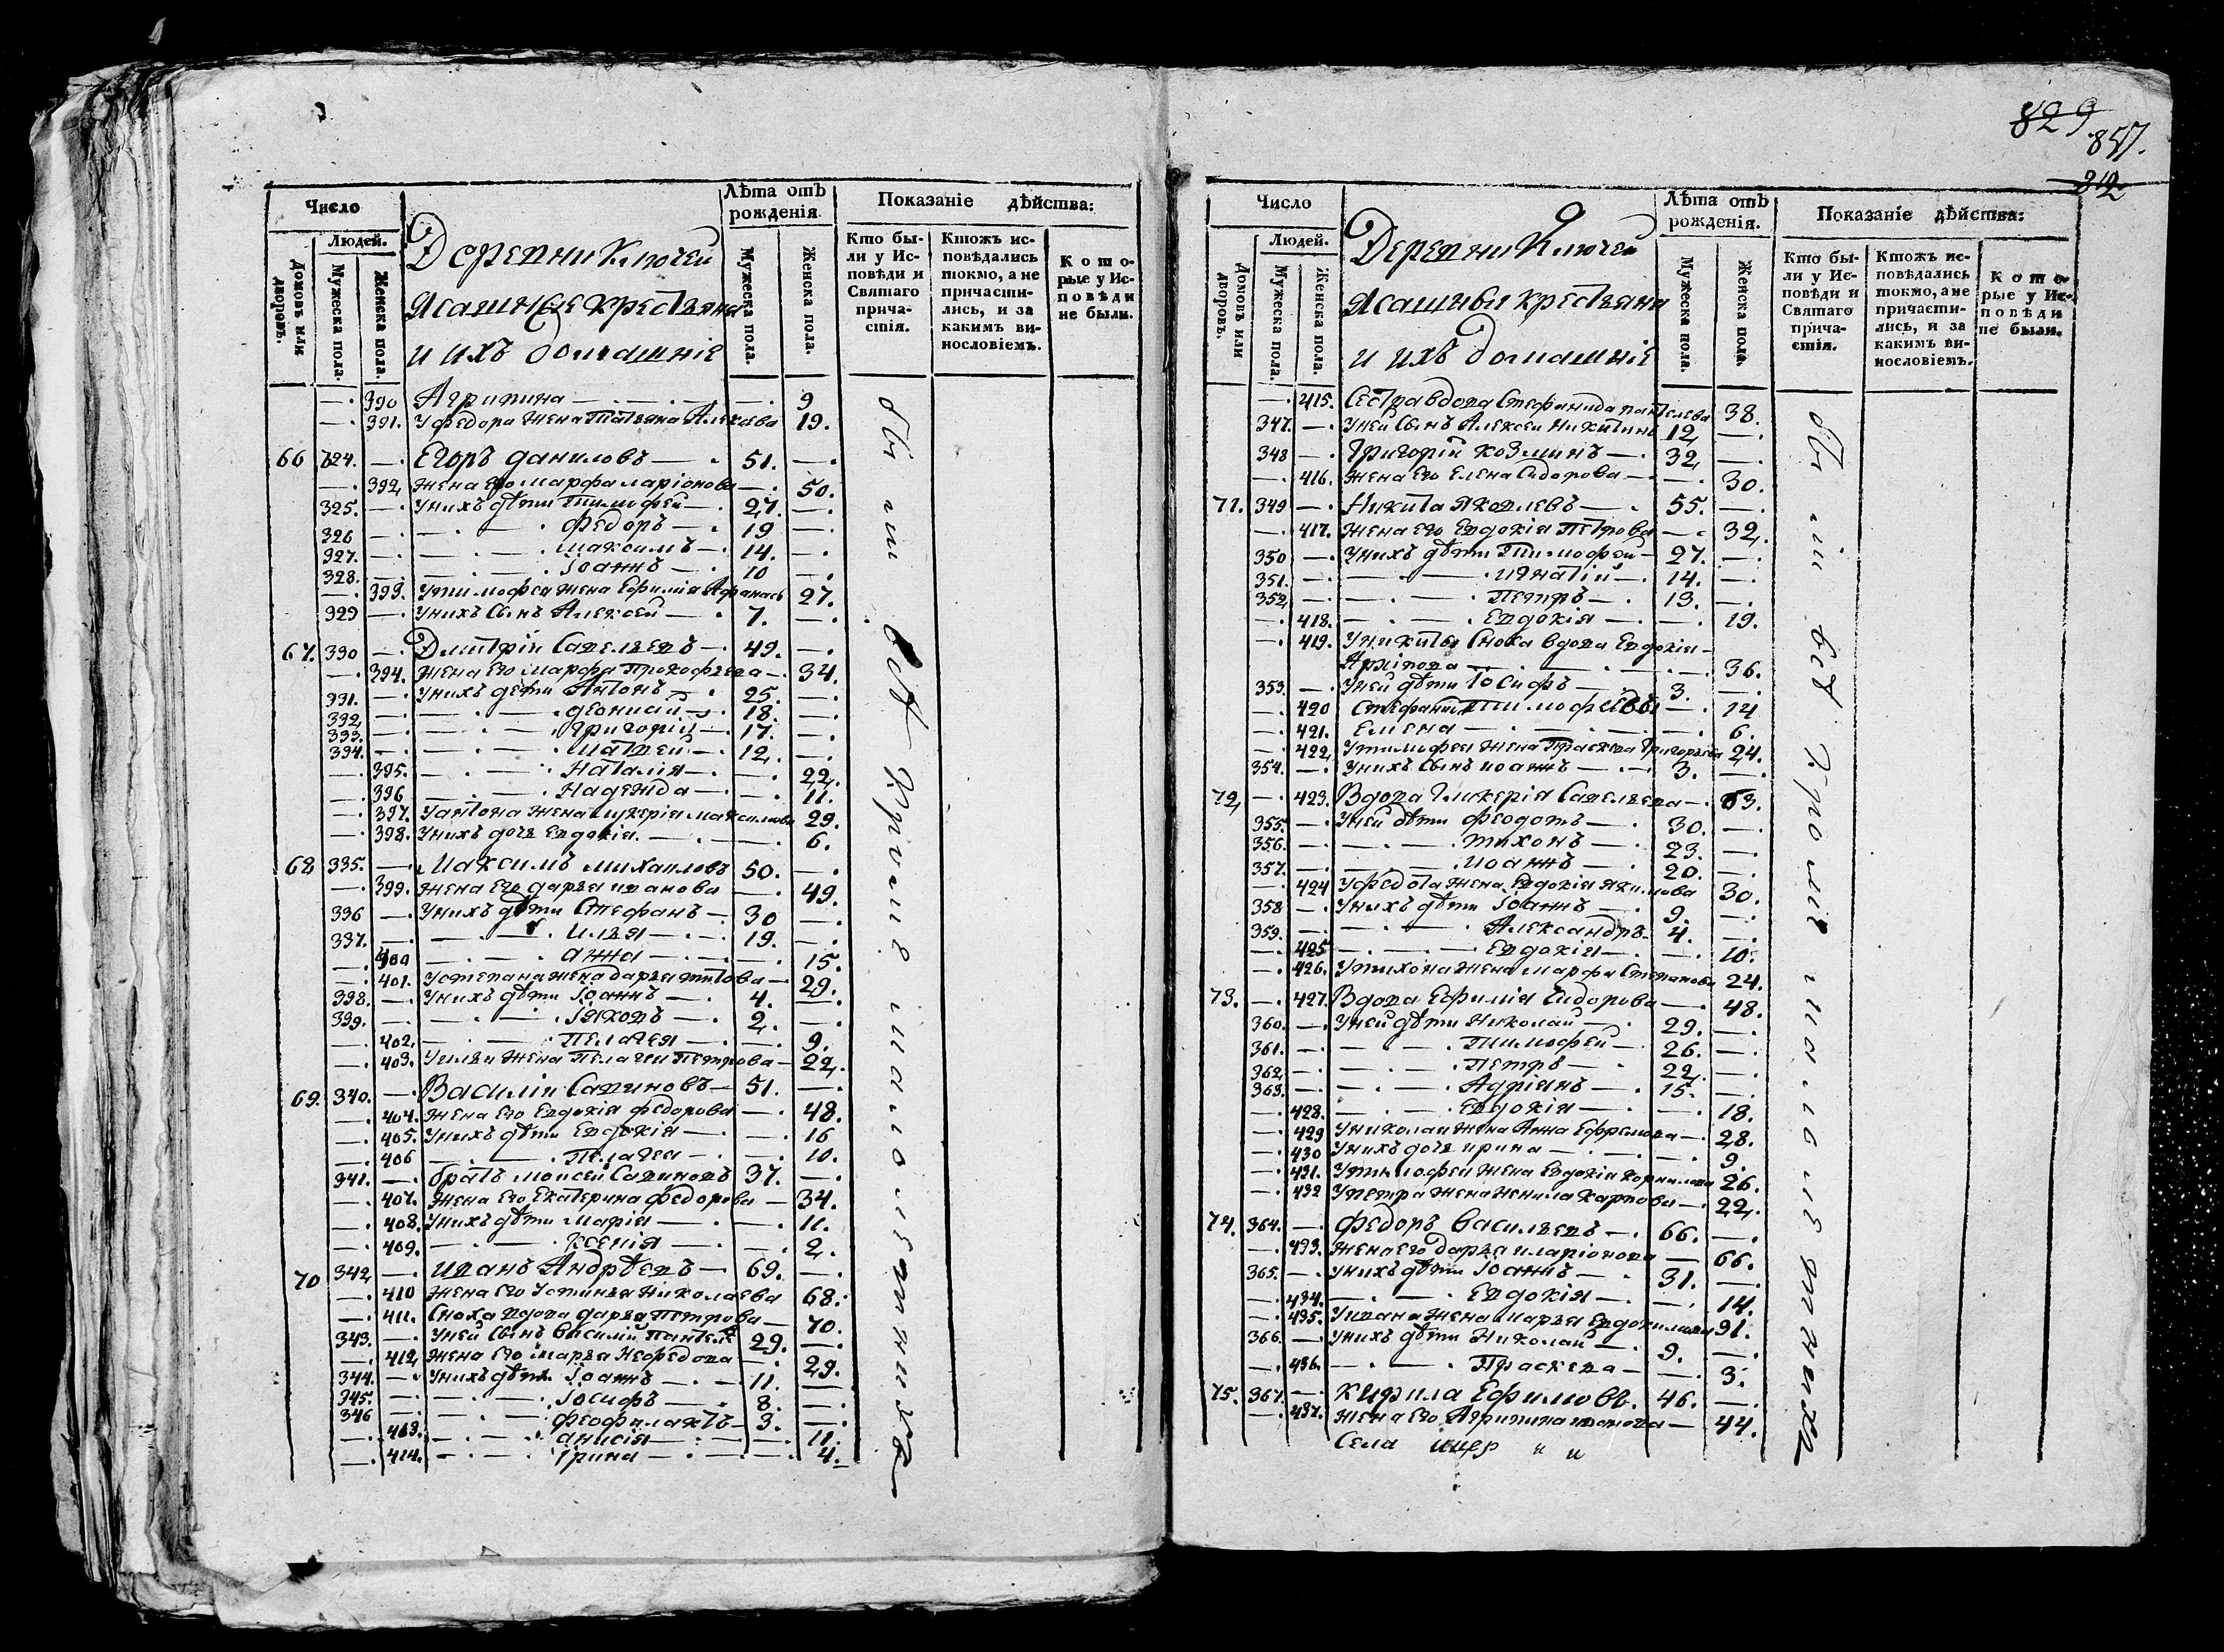 829
857.
842
Число
Людей.
Домовъ или дворовъ.
Мужеска пола.
Женска пола.
Деревни Ключей
Ясашные крестьяне
и ихъ домашніе
Лѣта отъ рожденія.
Мужеска пола.
Женска пола.
Показаніе дѣйства:
Кто были у Исповѣди и Святаго причастія.
Ктожъ исповѣдались токмо, а не причастились, и за какимъ винословіемъ.
Которые у Исповѣди не были.
—. 390 Агрипина —. —. 9
—. 391. У федора жена Татьяна Алексѣва 19.
66 324. —. Егоръ даниловъ —. 51. —.
—. 392 жена его марфа ларіонова —. 50.
325. —. У нихъ дѣти Тимофей —. 27. —.
326 —. —. федоръ —. 19 —.
327. —. —. максимъ —. 14. —.
328. —. —. Іоаннъ —. 10 —.
—. 393. У тимофея жена Ефимія Афанась 27.
329 —. У нихъ сынъ Алексей —. 7. —.
67. 330 —. Дмитрій Савельевъ —. 49. —.
—. 394. жена его марфа Прокофьева —. 34.
331. —. У нихъ дети Антонъ —. 25. —.
332 —. —. деонисій —. 18. —.
333. —. —. Григорій —. 17. —.
334. —. —. матвей —. 12. —.
—. 395. —. Наталія —. 22.
—. 396 —. Надежда —. 11.
—. 397. У антона жена лукерія максимова 29.
—. 398. У нихъ дочь Евдокія. —. 6.
68 335. —. Максимъ михаиловъ 50. —.
—. 399. жена его дарья иванова —. 49.
336 —. У нихъ дѣти Стефанъ —. 30 —.
337. —. —. илья —. 19. —.
—. 400 —. анна —. 15.
—. 401. У степана жена дарья титова —. 29.
338. —. У нихъ дѣти Іоаннъ —. 4. —.
339. —. —. Іаковъ —. 2. —.
—. 402. —. Пелагея —. 9.
—. 403. У ильи жена Пелагеи Петрова —. 22.
69. 340. —. Василіи Савиновъ —. 51. —.
—. 404. жена его Евдокія федорова —. 48.
—. 405. У нихъ дѣти Евдокія —. 16
—. 406 —. Пелагея —. 10.
341. —. братъ моисей Савиновъ 37. —.
—. 407. жена его Екатерина федорова —. 34.
—. 408. У нихъ дѣти Марія —. 11.
—. 409. —. Ксенія —. 2.
70 342 —. иванъ Андрѣевъ —. 69. —.
—. 410 жена его Устинья Николаева 68.
—. 411. Сноха вдова дарья Петрова —. 70.
343. —. У ней сынъ Василій Пантеле 29. —.
—. 412 жена его марья Нефедова —. 29.
344. —. У нихъ дѣти Іоаннъ —. 11. —.
345. —. —. Іосифъ —. 8. —.
346 —. —. феофилактъ —. 3. —.
—. 413. —. анисія —. 11.
—. 414. —. Ірина —. 4.
были всѣ Кроме малолетнихъ
Число
Людей.
Домовъ или дворовъ.
Мужеска пола.
Женска пола.
Деревни Ключей
Ясашныи крестьяни
и ихъ домашніе
Лѣта отъ рожденія.
Мужеска пола.
Женска пола.
Показаніе дѣйства:
Кто были у Исповѣди и Святаго причастія.
Ктожъ исповѣдались токмо, а не причастились, и за какимъ винословіемъ.
Которые у Исповѣди не были.
—. 415. Сестра вдова Стефанида пантелева 38.
347. —. У ней сынъ Алексеи Никитинъ 12 —.
348 —. Григорій козминъ —. 32 —.
—. 416. жена его Елена Сидорова —. 30.
71. 349 —. Никита Яковлевъ —. 55. —.
—. 417. жена его Евдокія Петрова —. 32.
350 —. У нихъ дѣти Тимофей —. 27. —.
351. —. —. игнатій —. 14. —.
352 —. —. Петръ —. 13. —.
—. 418. —. Евдокія —. 19.
—. 419. У никиты Сноха вдова Евдокія —
Архіпова —. 36.
353. —. У ней дѣти Іосифъ —. 3. —.
—. 420 Стефанид Тимофеевы —. 14
—. 421. Елена —. 6.
—. 422 У тимофея жена Прасковя Григорьева 24.
354. —. У нихъ сынъ иоаннъ —. 3. —.
72 —. 423. Вдова Гликерія Савельева —. 63.
355. —. У ней дѣти феодотъ —. 30. —.
356. —. —. тихонъ —. 23. —.
357. —. —. иоаннъ —. 20. —.
—. 424 У федота жена Евдокія Якимова 30.
358 —. У нихъ дѣти Іоаннъ —. 9. —.
359. —. —. Александръ —. 4. —.
—. 425 —. Евдокія —. 10.
—. 426. У тихона жена марфа Степанова 24.
73. —. 427. Вдова Ефимія Сидорова —. 48.
360. —. У ней дѣти Николай —. 29. —.
361. —. —. Тимофей —. 26. —.
362 —. —. Петръ —. 22. —.
363. —. —. Адріянъ —. 15. —.
—. 428. —. Евдокія —. 18.
—. 429 У николаи жена Анна Ефремова —. 28.
—. 430 У нихъ дочь ирина —. 9.
—. 431. У тимофеи жена Евдокія корнилова 26.
—. 432 У петра жена Ненила карпова —. 22.
74. 364. —. федоръ Васильевъ —. 66. —.
—. 433. жена его дарья иларіонова —. 66.
365. —. У нихъ дѣти Іоаннъ —. 31. —.
—. 434. —. Евдокія —. 14.
—. 435. У ивана жена марья Евдокимова 31.
366. —. У нихъ дѣти Николаи —. 9. —.
—. 436. —. Праскева —. 3.
75. 367. —. кирила Ефимовъ. 46. —.
—. 437. жена его Агрипина —. 44.
Села
были всѣ Кроме малолетнихъ